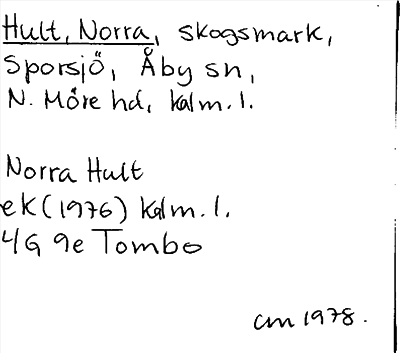 Hult, Norra, skogsmark,
Sporsjö, Åby sn,
N. Möre hd, kalm. l.
Norra Hult
ek (1976) Kalm. l.
4G 9e Tombo
cm 1978.